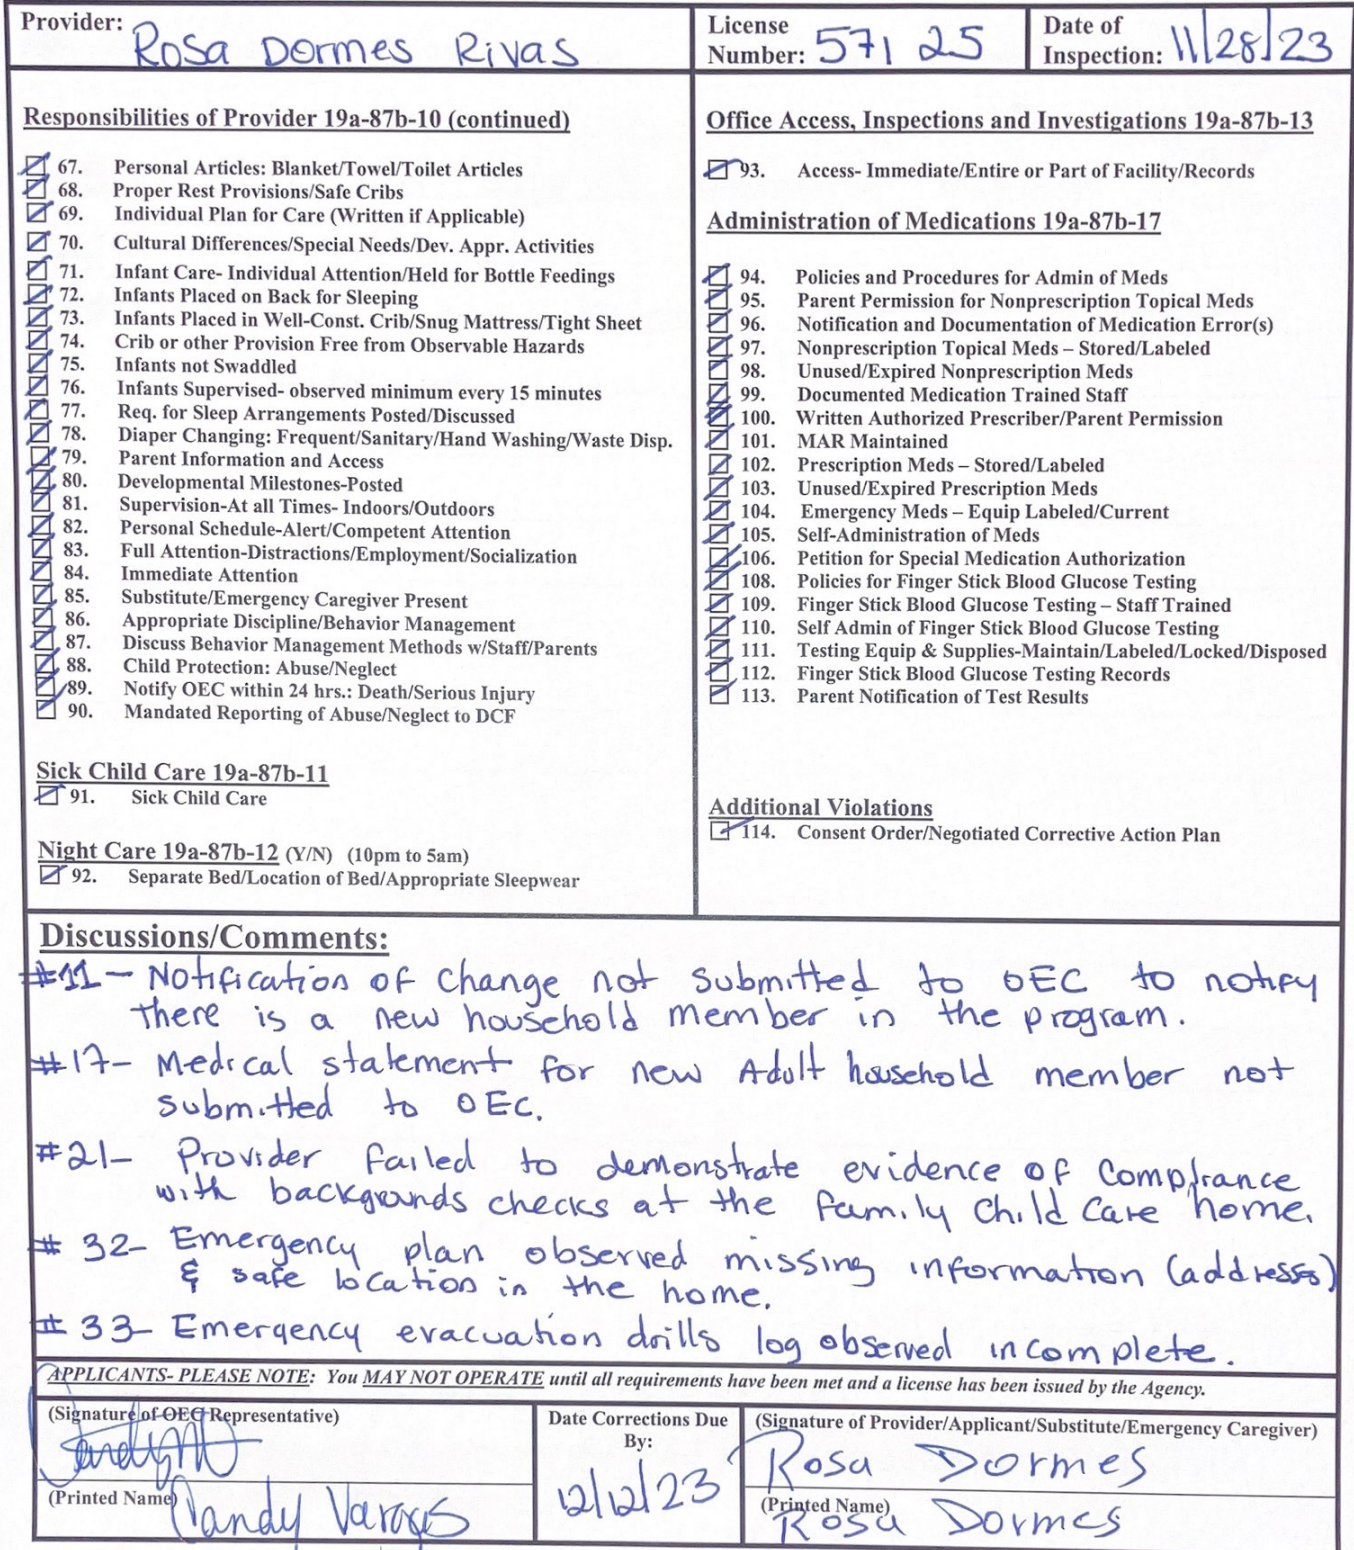 Provider: Rosa Dormes Rivas
License Number: 57125
Date of Inspection: 11/28/23
Responsibilities of Provider 19a-87b-10 (continued)
67. Personal Articles: Blanket/Towel/Toilet Articles
68. Proper Rest Provisions/Safe Cribs
69. Individual Plan for Care (Written if Applicable)
70. Cultural Differences/Special Needs/Dev. Appr. Activities
71. Infant Care- Individual Attention/Held for Bottle Feedings
72. Infants Placed on Back for Sleeping
73. Infants Placed in Well-Const. Crib/Snug Mattress/Tight Sheet
74. Crib or other Provision Free from Observable Hazards
75. Infants not Swaddled
76. Infants Supervised- observed minimum every 15 minutes
77. Req. for Sleep Arrangements Posted/Discussed
78. Diaper Changing: Frequent/Sanitary/Hand Washing/Waste Disp.
79. Parent Information and Access
80. Developmental Milestones-Posted
81. Supervision-At all Times- Indoors/Outdoors
82. Personal Schedule-Alert/Competent Attention
83. Full Attention-Distractions/Employment/Socialization
84. Immediate Attention
85. Substitute/Emergency Caregiver Present
86. Appropriate Discipline/Behavior Management
87. Discuss Behavior Management Methods w/Staff/Parents
88. Child Protection: Abuse/Neglect
89. Notify OEC within 24 hrs.: Death/Serious Injury
90. Mandated Reporting of Abuse/Neglect to DCF
Sick Child Care 19a-87b-11
91. Sick Child Care
Night Care 19a-87b-12 (Y/N) (10pm to 5am)
92. Separate Bed/Location of Bed/Appropriate Sleepwear
Office Access, Inspections and Investigations 19a-87b-13
93. Access- Immediate/Entire or Part of Facility/Records
Administration of Medications 19a-87b-17
94. Policies and Procedures for Admin of Meds
95. Parent Permission for Nonprescription Topical Meds
96. Notification and Documentation of Medication Error(s)
97. Nonprescription Topical Meds – Stored/Labeled
98. Unused/Expired Nonprescription Meds
99. Documented Medication Trained Staff
100. Written Authorized Prescriber/Parent Permission
101. MAR Maintained
102. Prescription Meds – Stored/Labeled
103. Unused/Expired Prescription Meds
104. Emergency Meds – Equip Labeled/Current
105. Self-Administration of Meds
106. Petition for Special Medication Authorization
108. Policies for Finger Stick Blood Glucose Testing
109. Finger Stick Blood Glucose Testing – Staff Trained
110. Self Admin of Finger Stick Blood Glucose Testing
111. Testing Equip & Supplies-Maintain/Labeled/Locked/Disposed
112. Finger Stick Blood Glucose Testing Records
113. Parent Notification of Test Results
Additional Violations
114. Consent Order/Negotiated Corrective Action Plan
Discussions/Comments:
#11 - Notification of change not submitted to OEC to notify
there is a new household member in the program.
#17- Medical statement for new Adult household member not
submitted to OEC.
#21- Provider failed to demonstrate evidence of compliance
with backgrounds checks at the family child care home.
# 32- Emergency plan observed missing information (addresses)
& safe location in the home.
# 33- Emergency evacuation drills log observed incomplete.
APPLICANTS- PLEASE NOTE: You MAY NOT OPERATE until all requirements have been met and a license has been issued by the Agency.
(Signature of OEC Representative)
(Printed Name) Vargas
Date Corrections Due
By:
12/12/23
(Signature of Provider/Applicant/Substitute/Emergency Caregiver)
Rosa Dormes
(Printed Name)
Rosa Dormes